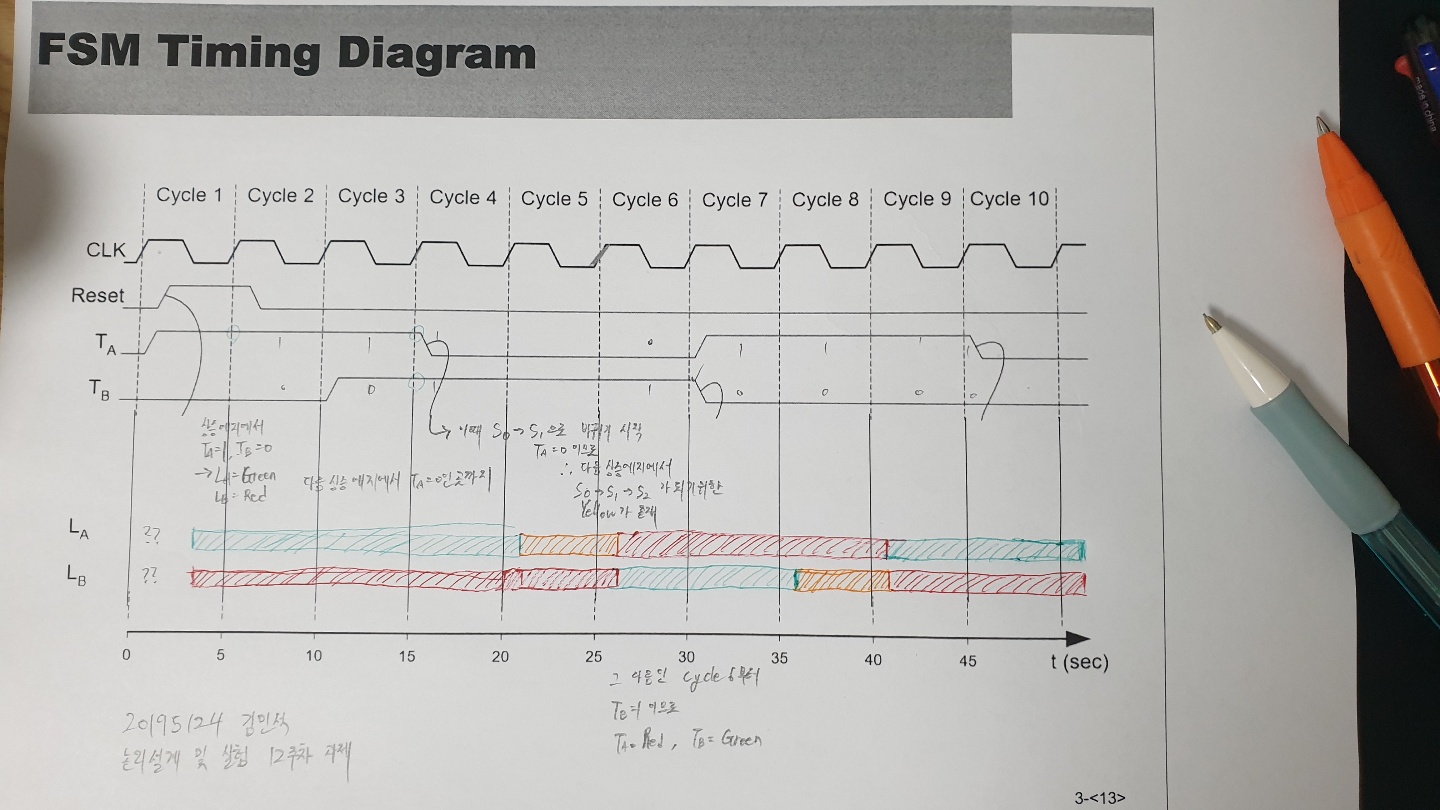 FSM Timing Diagram
Cycle 1 Cycle 2 Cycle 3 Cycle 4 Cycle 5 Cycle 6 Cycle 7 Cycle 8 Cycle 9 Cycle 10
CLK
Reset
TA 1 1 1 0 1 1 1 1
TB 0 0 1 1 0 0 0 0
상승에지에서
TA=1, TB=0
→ LA=Green
LB=Red
다음 상승에지에서 TA=0인 곳까지
→ 이때 S0→S1으로 바뀌기 시작
TA=0 이므로
∴ 다음 상승에지에서
S0→S1→S2 가 되기위한
Yellow가 존재
LA ??
LB ??
0 5 10 15 20 25 30 35 40 45 t (sec)
그 다음인 Cycle 6부터
TB=1 이므로
TA=Red, TB=Green
20195124 김민석
논리설계 및 실험 12주차 과제
3-<13>
made in china